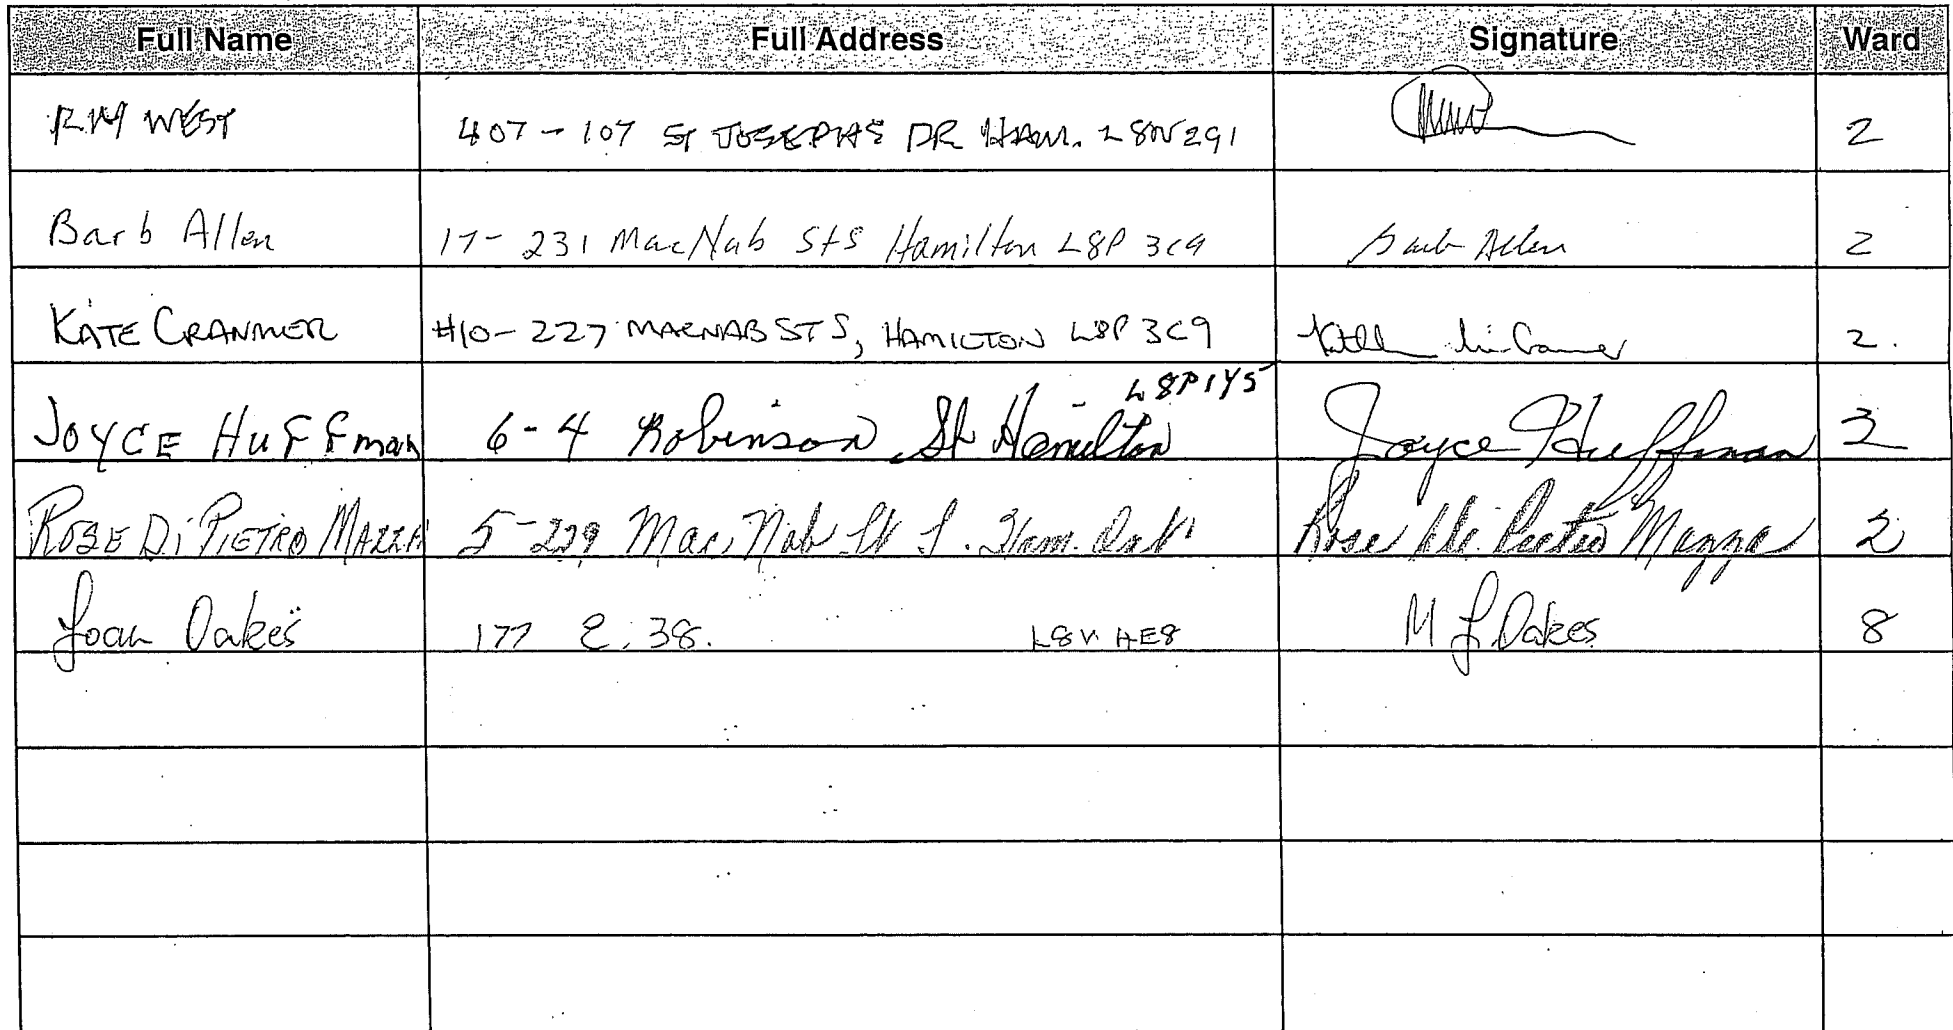 Full Name Full Address Signature Ward
RM WEST 407 - 107 ST JOSEPHS DR HAM. L8N2G1 2
Barb Allen 17 - 231 MacNab St S Hamilton L8P 3C9 Barb Allen 2
KATE CRANMER #10 - 227 MACNAB ST S, HAMILTON L8P 3C9 2.
L8P1Y5
JOYCE HUFFman 6 - 4 Robinson St Hamilton Joyce Huffman 2
ROSE Di PIETRO MAZZA 5-229 Mac Nab St S. Ham. Ont Rose Di Pietro Mazza 2
Joan Oakes 177 E. 38. L8V 4E8 M J Oakes 8